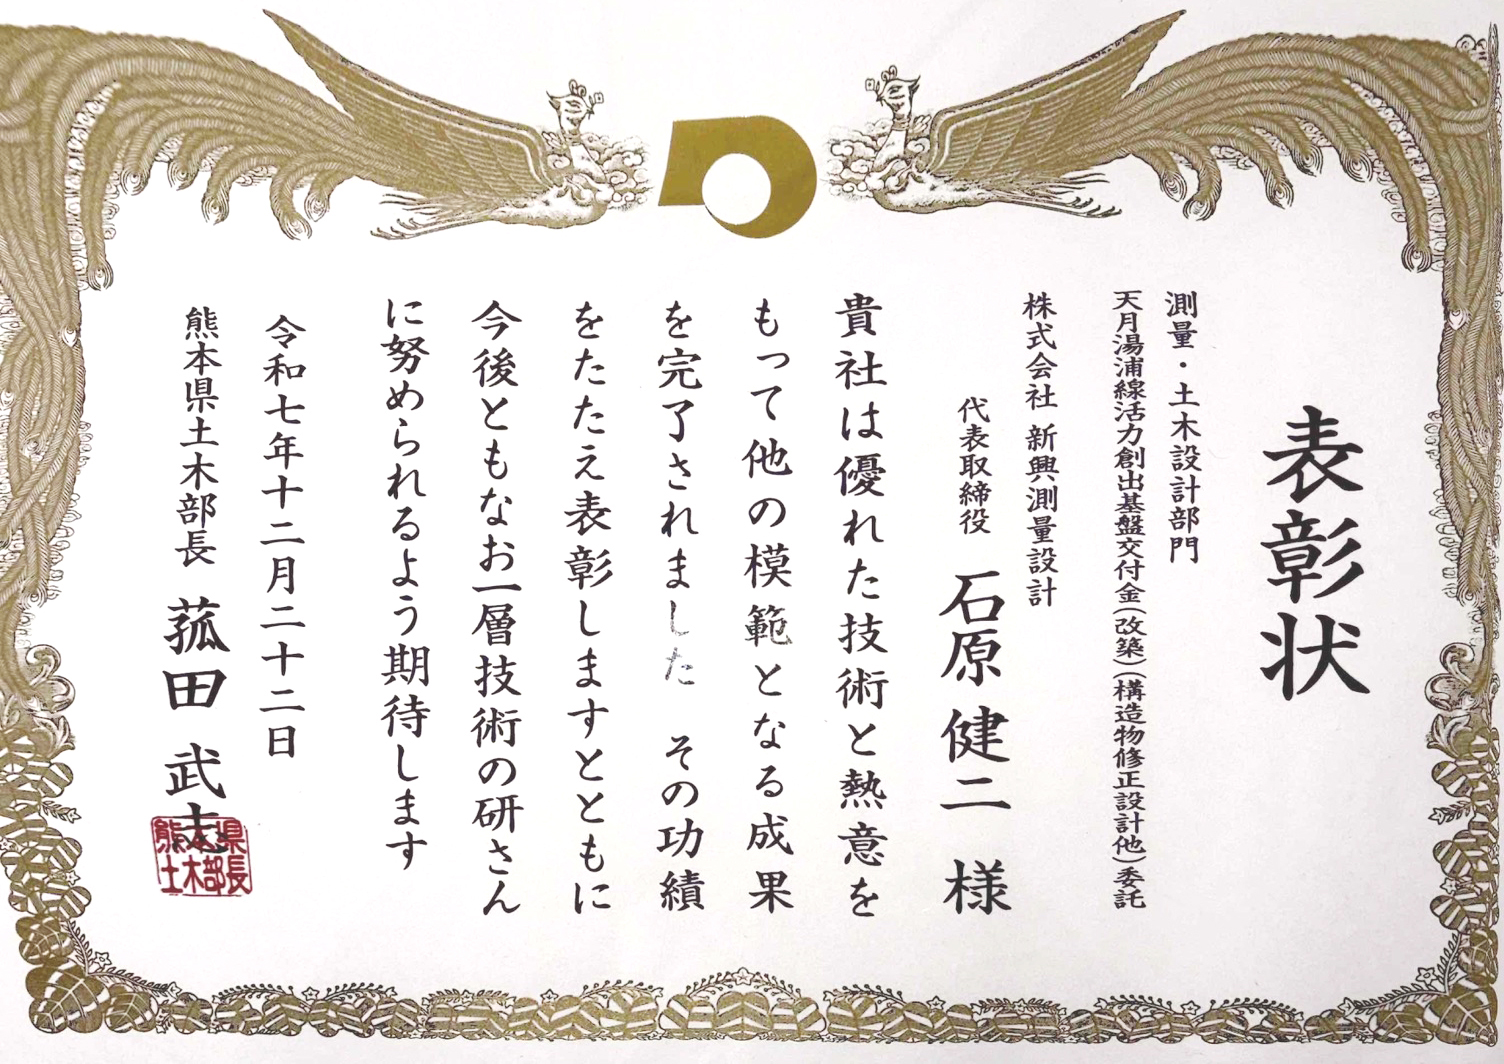 表彰状
測量・土木設計部門
天月湯浦線活力創出基盤交付金(改築)(構造物修正設計他)委託
株式会社 新興測量設計
代表取締役 石原 健二 様
貴社は優れた技術と熱意を
もって他の模範となる成果
を完了されました その功績
をたたえ表彰しますとともに
今後ともなお一層技術の研さん
に努められるよう期待します
令和七年十二月二十二日
熊本県土木部長 菰田 武志
熊本県
土木部長